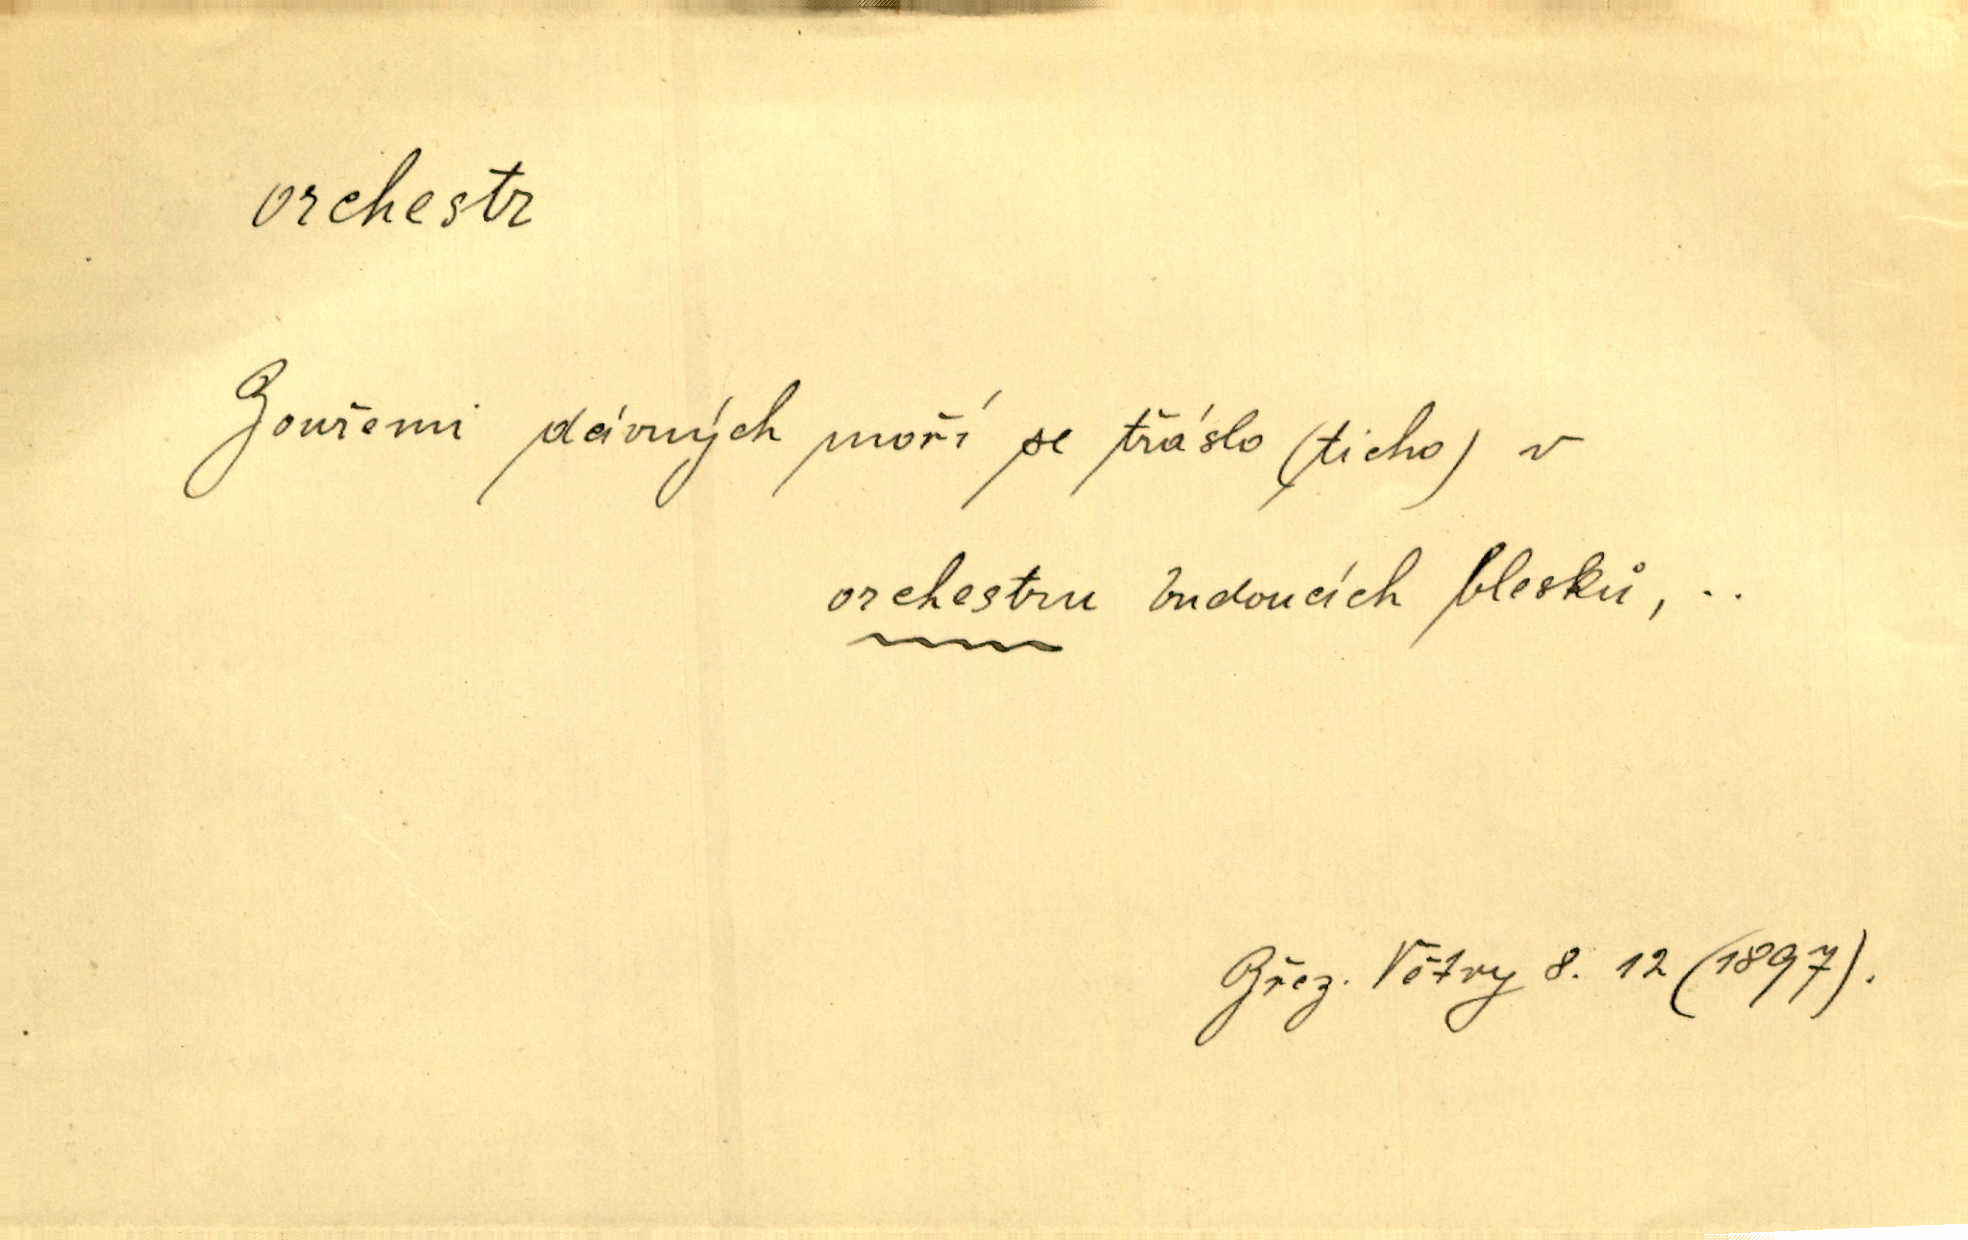 orchestr
Bouřemi dávných moří se třáslo (ticho) v
orchestru budoucích blesků, ..
Břez. Větry 8. 12 (1897).